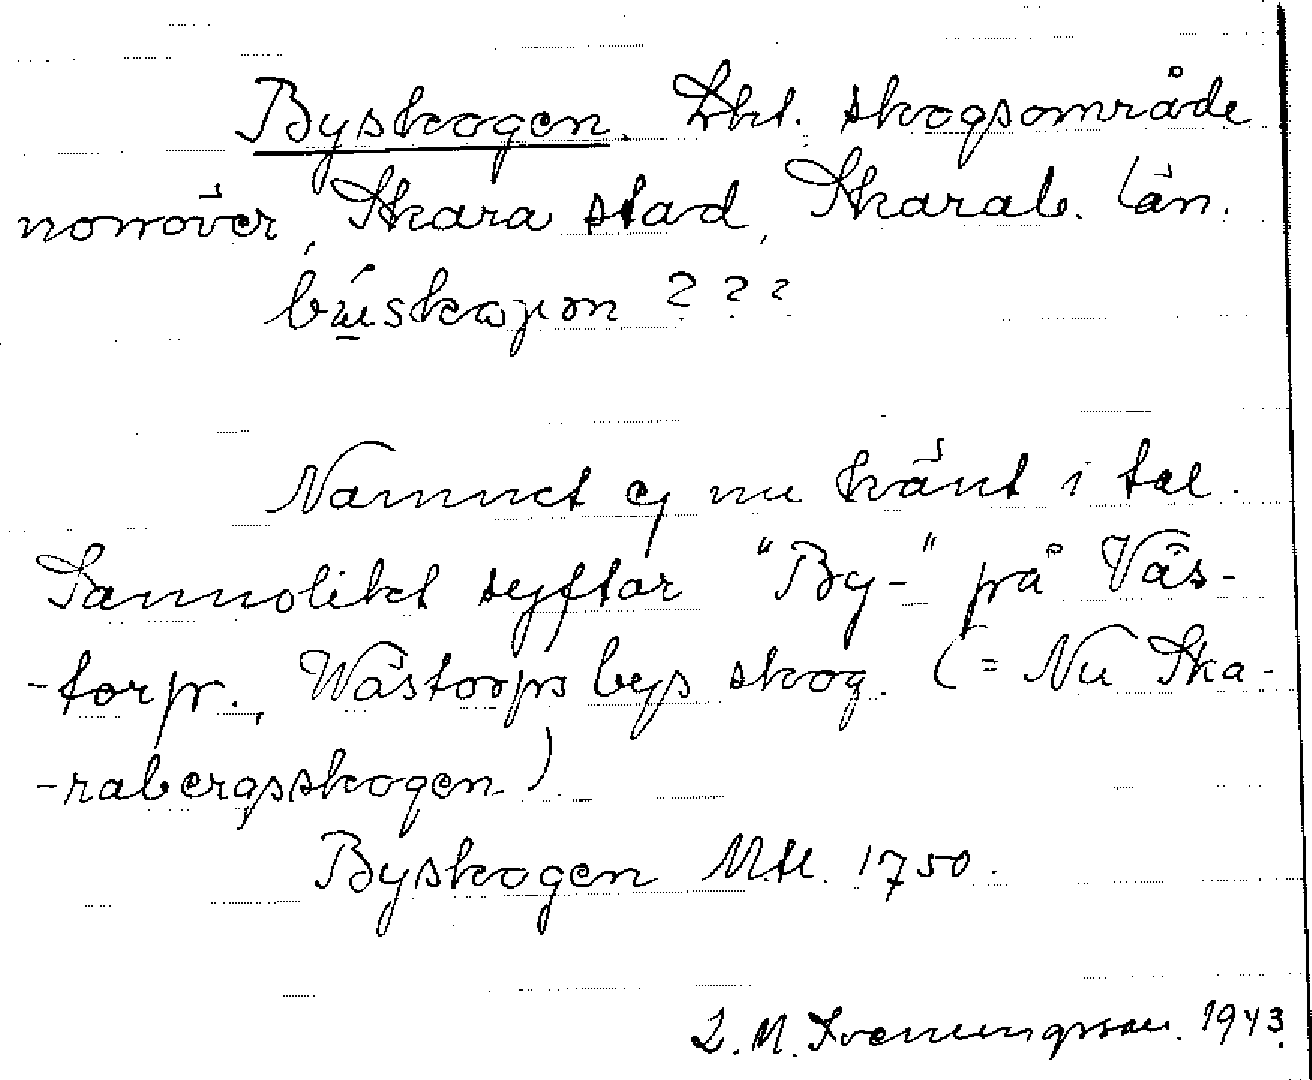 Byskogen. Ekl. skogsområde
norröver, Skara stad, Skarab. län.
býskojεn ???
Namnet ej nu känt i tal.
Sannolikt syftar "By-" på Väs-
-torp., Wästorps bys skog. (= Nu Ska-
-rabergsskogen)
Byskogen Mtl. 1750.
L. M. Svenungsson. 1943.